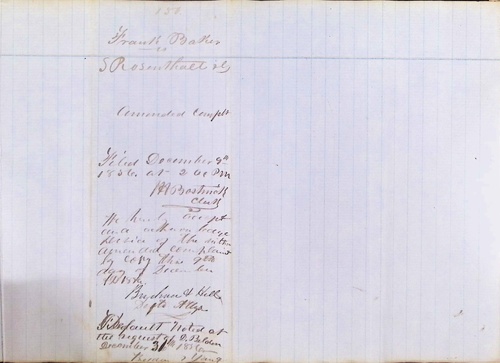 151
Frank Baker
vs
S Rosenthall & Co
Amended Complt
Filed December 9th
1856 at 2 oc PM
Bostwick
Clerk
We hereby accept
and
service of the within
amended complaint
by copy this 9th
day of December
1856
& Hill
Defts Attys
Default Noted at
the request of
December 31st 1856